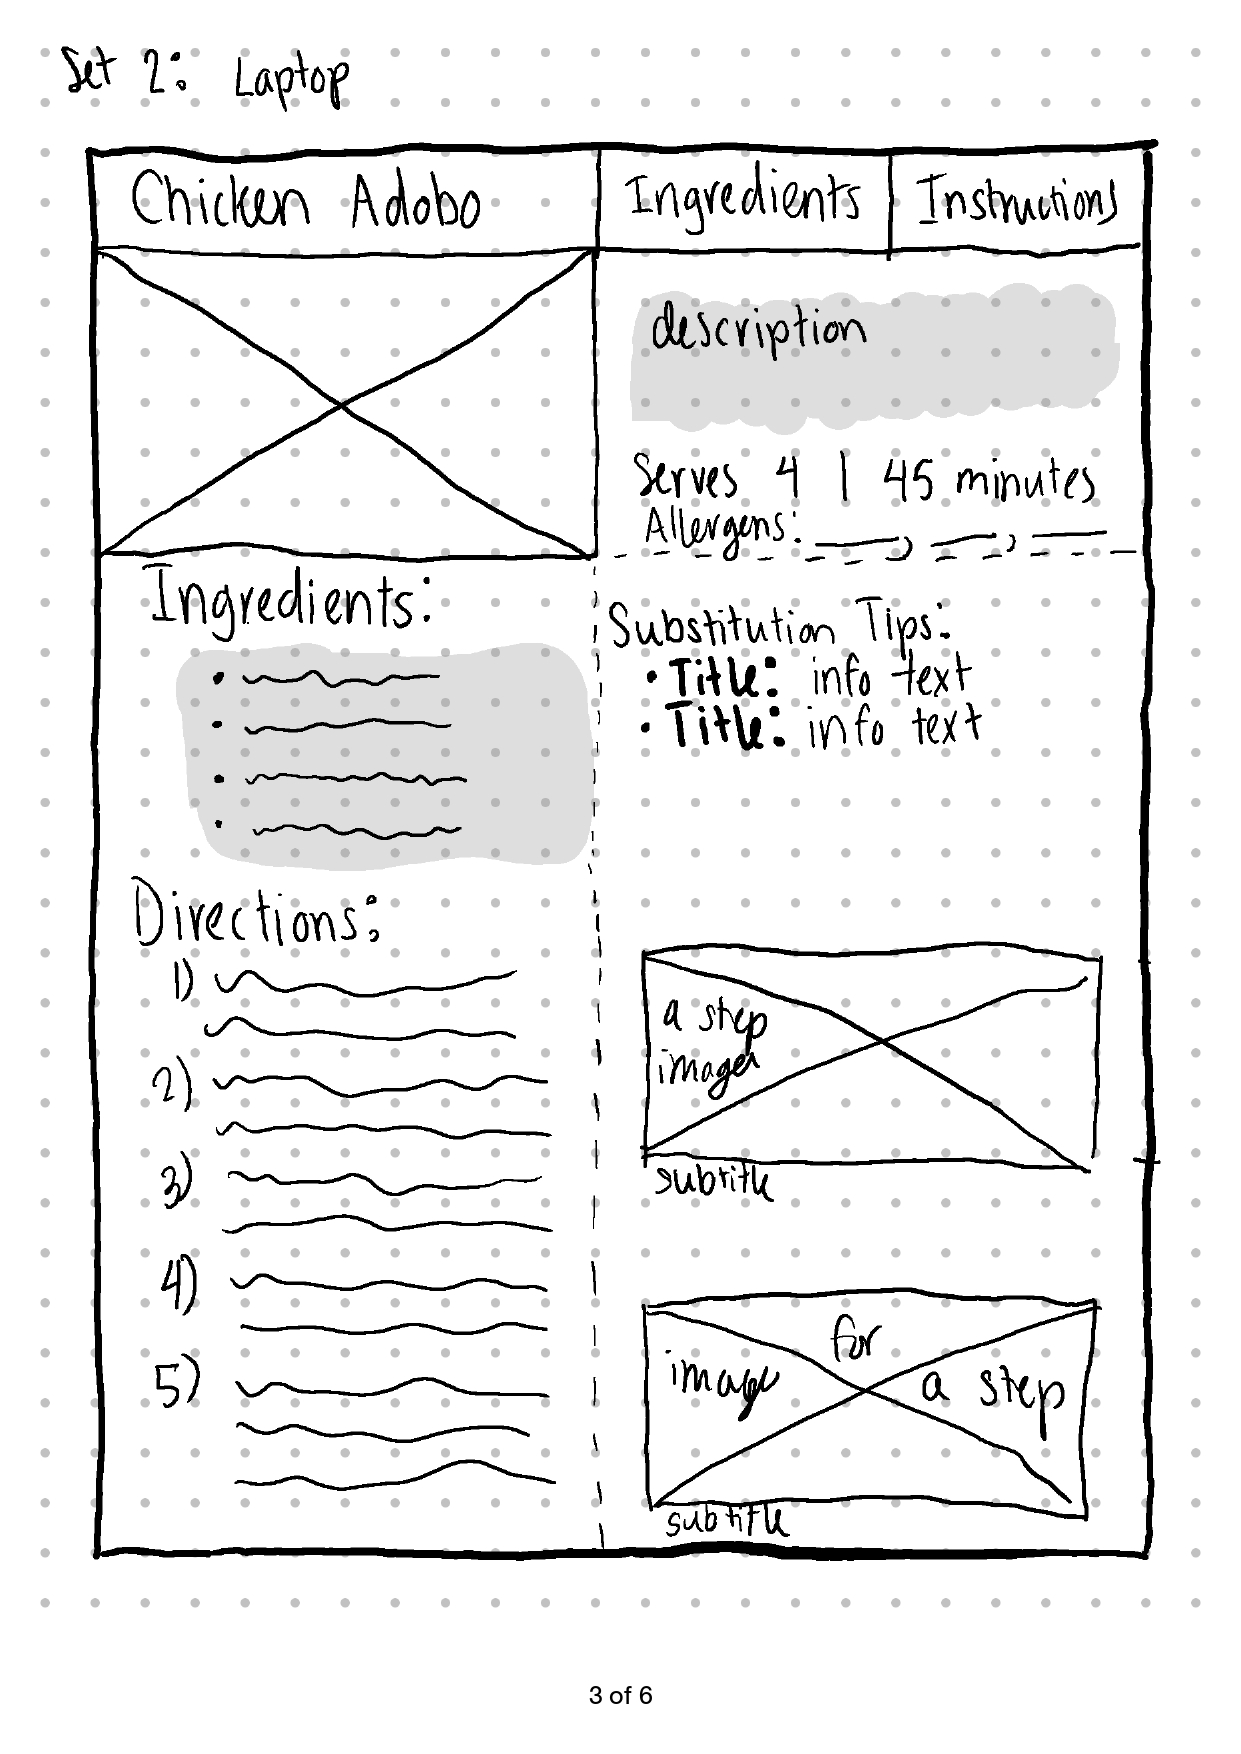 Set 2: Laptop
Chicken Adobo
Ingredients
Instructions
description
Serves 4 | 45 minutes
Allergens: , ,
Ingredients:
Substitution Tips:
• Title: info text
• Title: info text
Directions:
1)
2)
3)
4)
5)
a step
image
subtitle
image for a step
subtitle
3 of 6